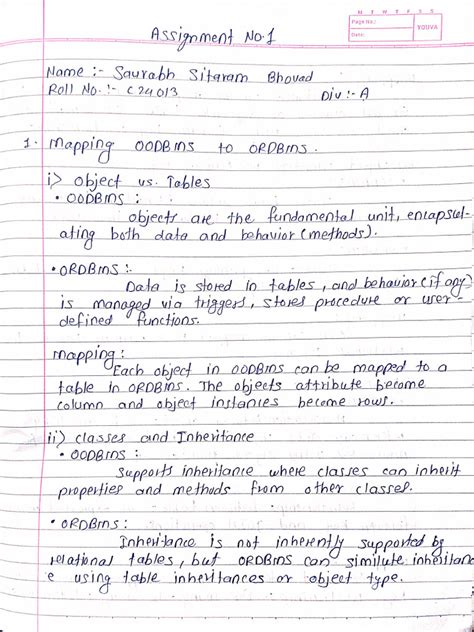 NEWTESS
Page No.:
Date:
YOUVA
Assignment No.1
Name :- Saurabh Sitaram Bhovad
Roll No. :- C24013
Div :- A
1. Mapping OODBms to ORDBms.
i) object vs. Tables
• OODBms :
objects are the fundamental unit, encapsul-
ating both data and behavior (methods).
• ORDBms :
Data is stored in tables, and behavior (if any)
is managed via triggers, stores procedure or user-
defined functions.
mapping :
Each object in OODBms can be mapped to a
table in ORDBms. The objects attribute become
column and object instances become rows.
ii) classes and Inheritance
• OODBms :
Supports inheritance where classes can inherit
properties and methods from other classes.
• ORDBms :
Inheritance is not inherently supported by
relational tables, but ORDBms can similute inheritanc
e using table inheritances or object type.